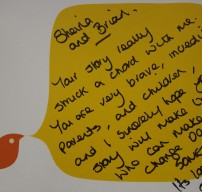 Sheina
and Brian.
Your story really
struck a chord with me.
You are very brave, incredi
parents, and children,
and I sincerely hope y
story will make
who can make
change do
save
Its lo